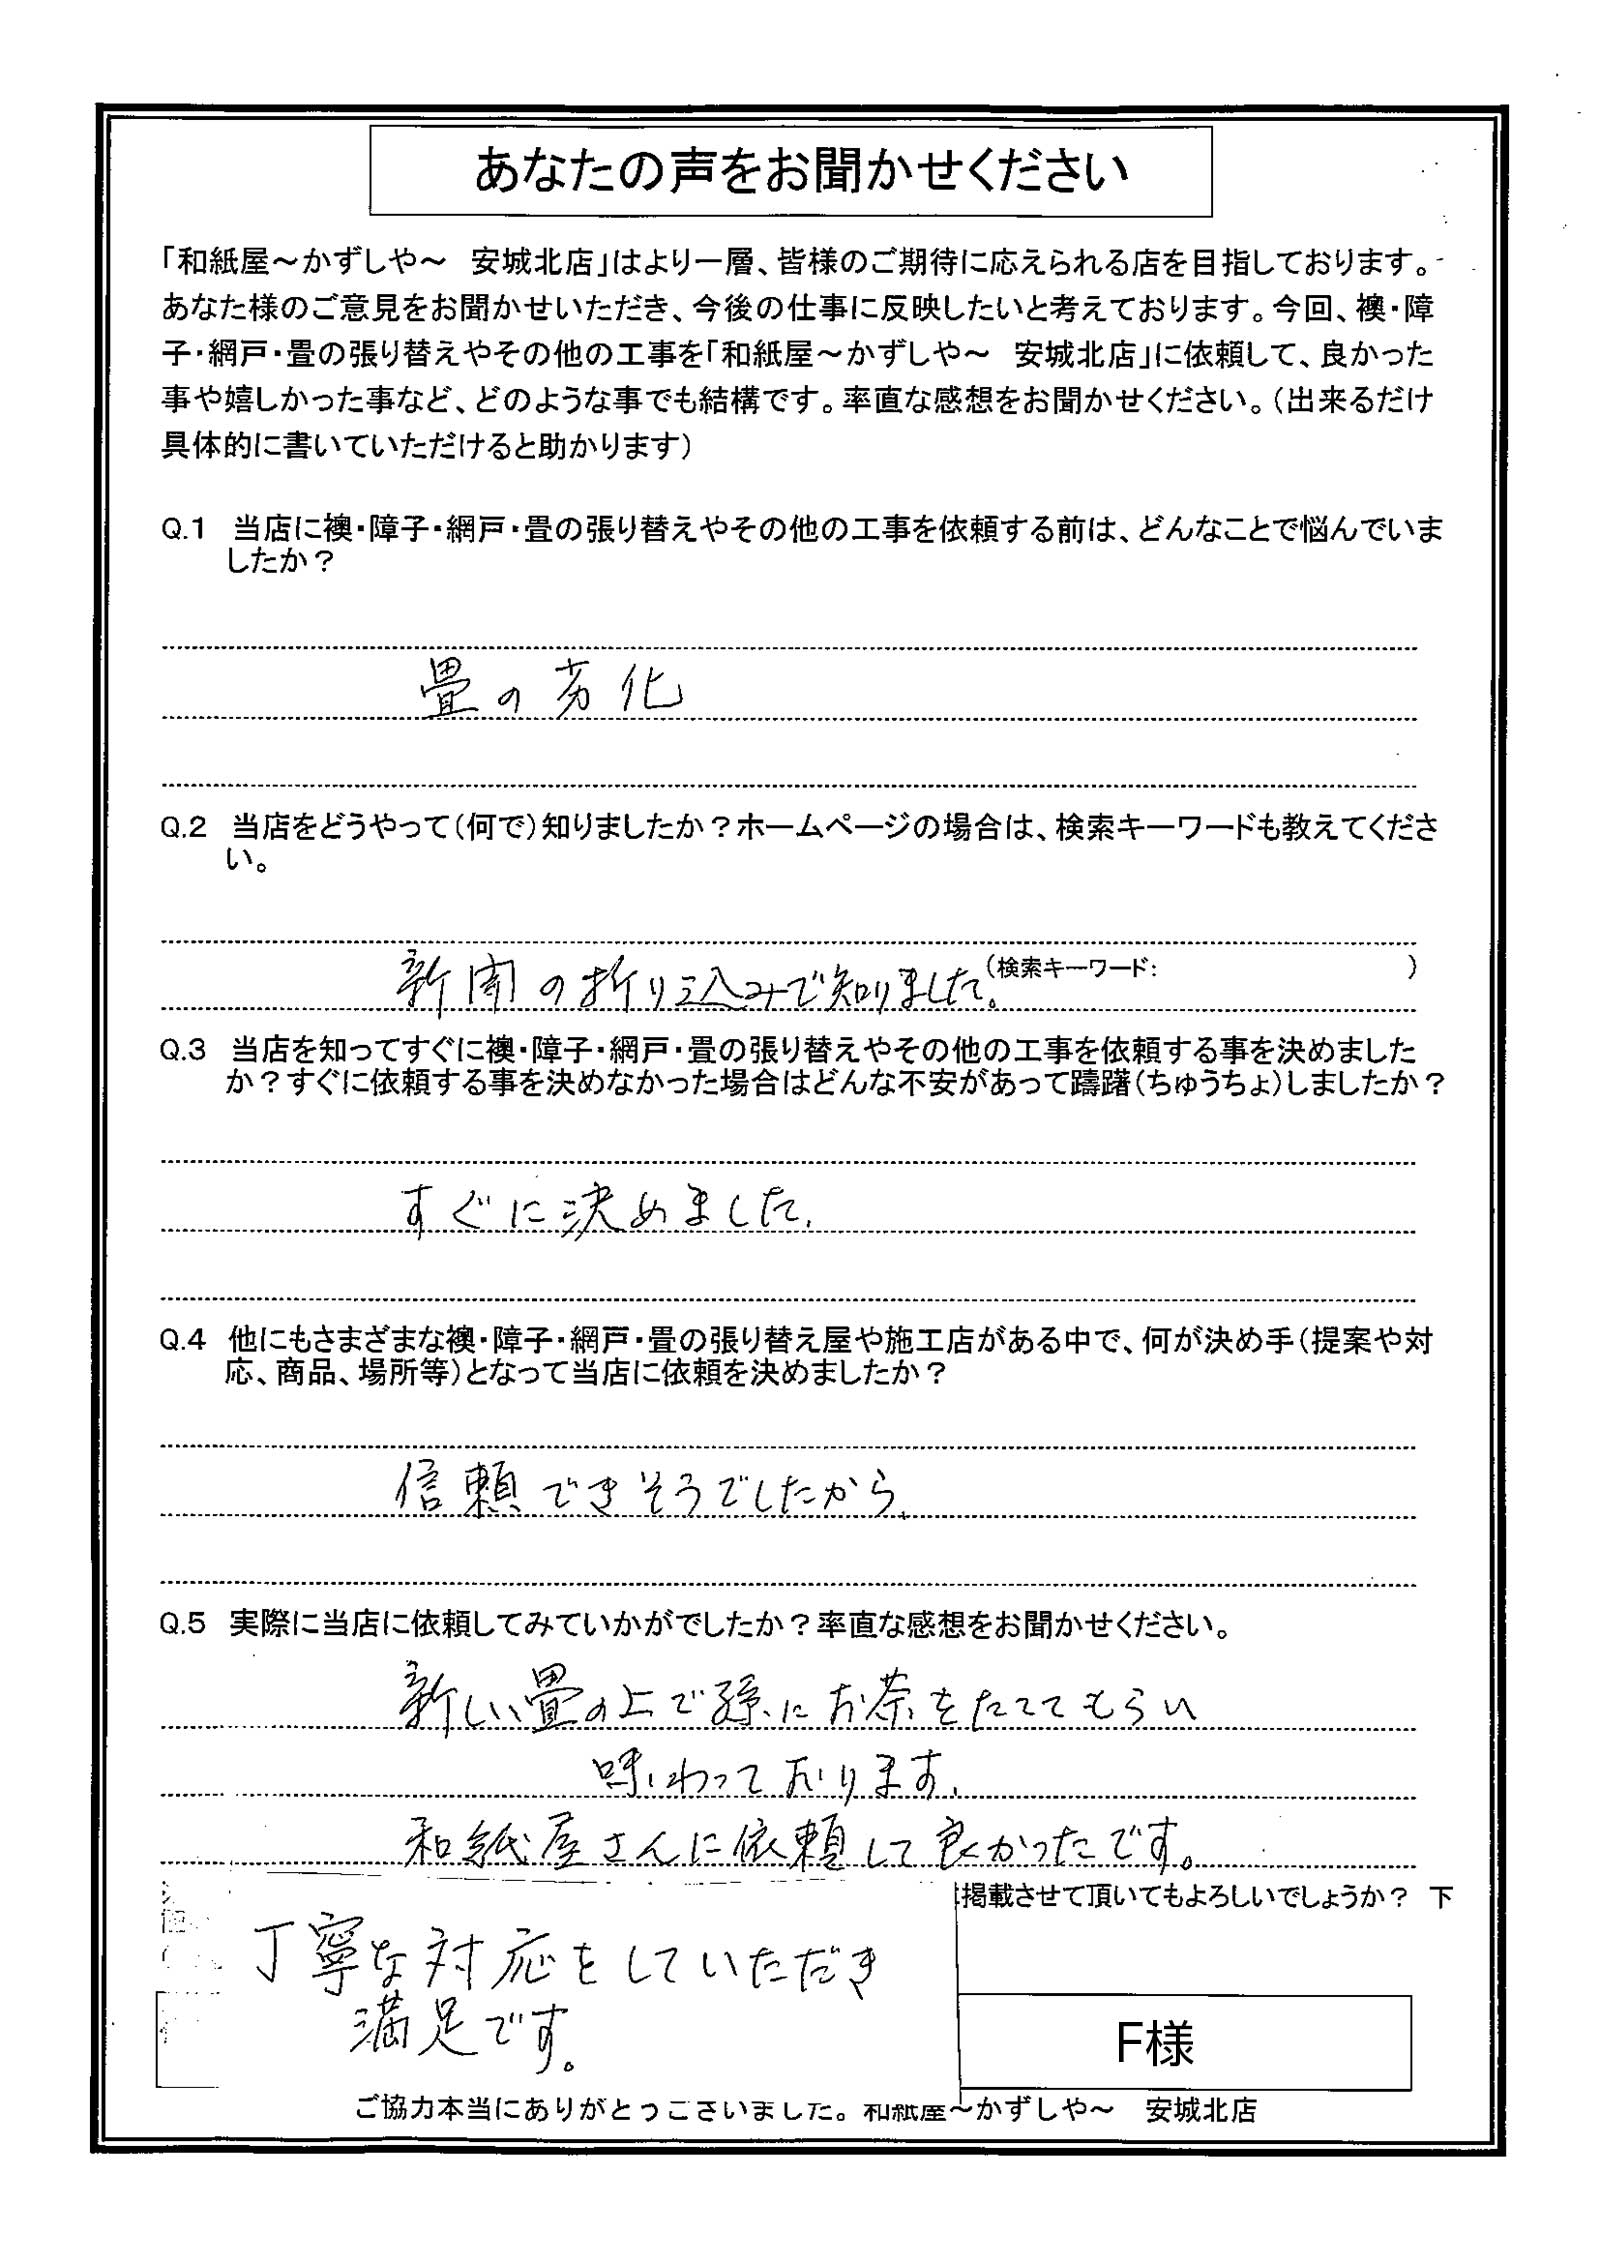 あなたの声をお聞かせください
「和紙屋～かずしや～　安城北店」はより一層、皆様のご期待に応えられる店を目指しております。
あなた様のご意見をお聞かせいただき、今後の仕事に反映したいと考えております。今回、襖・障
子・網戸・畳の張り替えやその他の工事を「和紙屋～かずしや～　安城北店」に依頼して、良かった
事や嬉しかった事など、どのような事でも結構です。率直な感想をお聞かせください。（出来るだけ
具体的に書いていただけると助かります）
Q.1　当店に襖・障子・網戸・畳の張り替えやその他の工事を依頼する前は、どんなことで悩んでいま
したか？
畳の劣化
Q.2　当店をどうやって（何で）知りましたか？ホームページの場合は、検索キーワードも教えてくださ
い。
新聞の折り込みで知りました。（検索キーワード：　　　　　　　　）
Q.3　当店を知ってすぐに襖・障子・網戸・畳の張り替えやその他の工事を依頼する事を決めました
か？すぐに依頼する事を決めなかった場合はどんな不安があって躊躇（ちゅうちょ）しましたか？
すぐに決めました.
Q.4　他にもさまざまな襖・障子・網戸・畳の張り替え屋や施工店がある中で、何が決め手（提案や対
応、商品、場所等）となって当店に依頼を決めましたか？
信頼できそうでしたから.
Q.5　実際に当店に依頼してみていかがでしたか？率直な感想をお聞かせください。
新しい畳の上で孫にお茶をたててもらい
味わっております.
和紙屋さんに依頼して良かったです。
掲載させて頂いてもよろしいでしょうか？　下
丁寧な対応をしていただき
満足です。
F様
ご協力本当にありがとうございました。和紙屋～かずしや～　安城北店